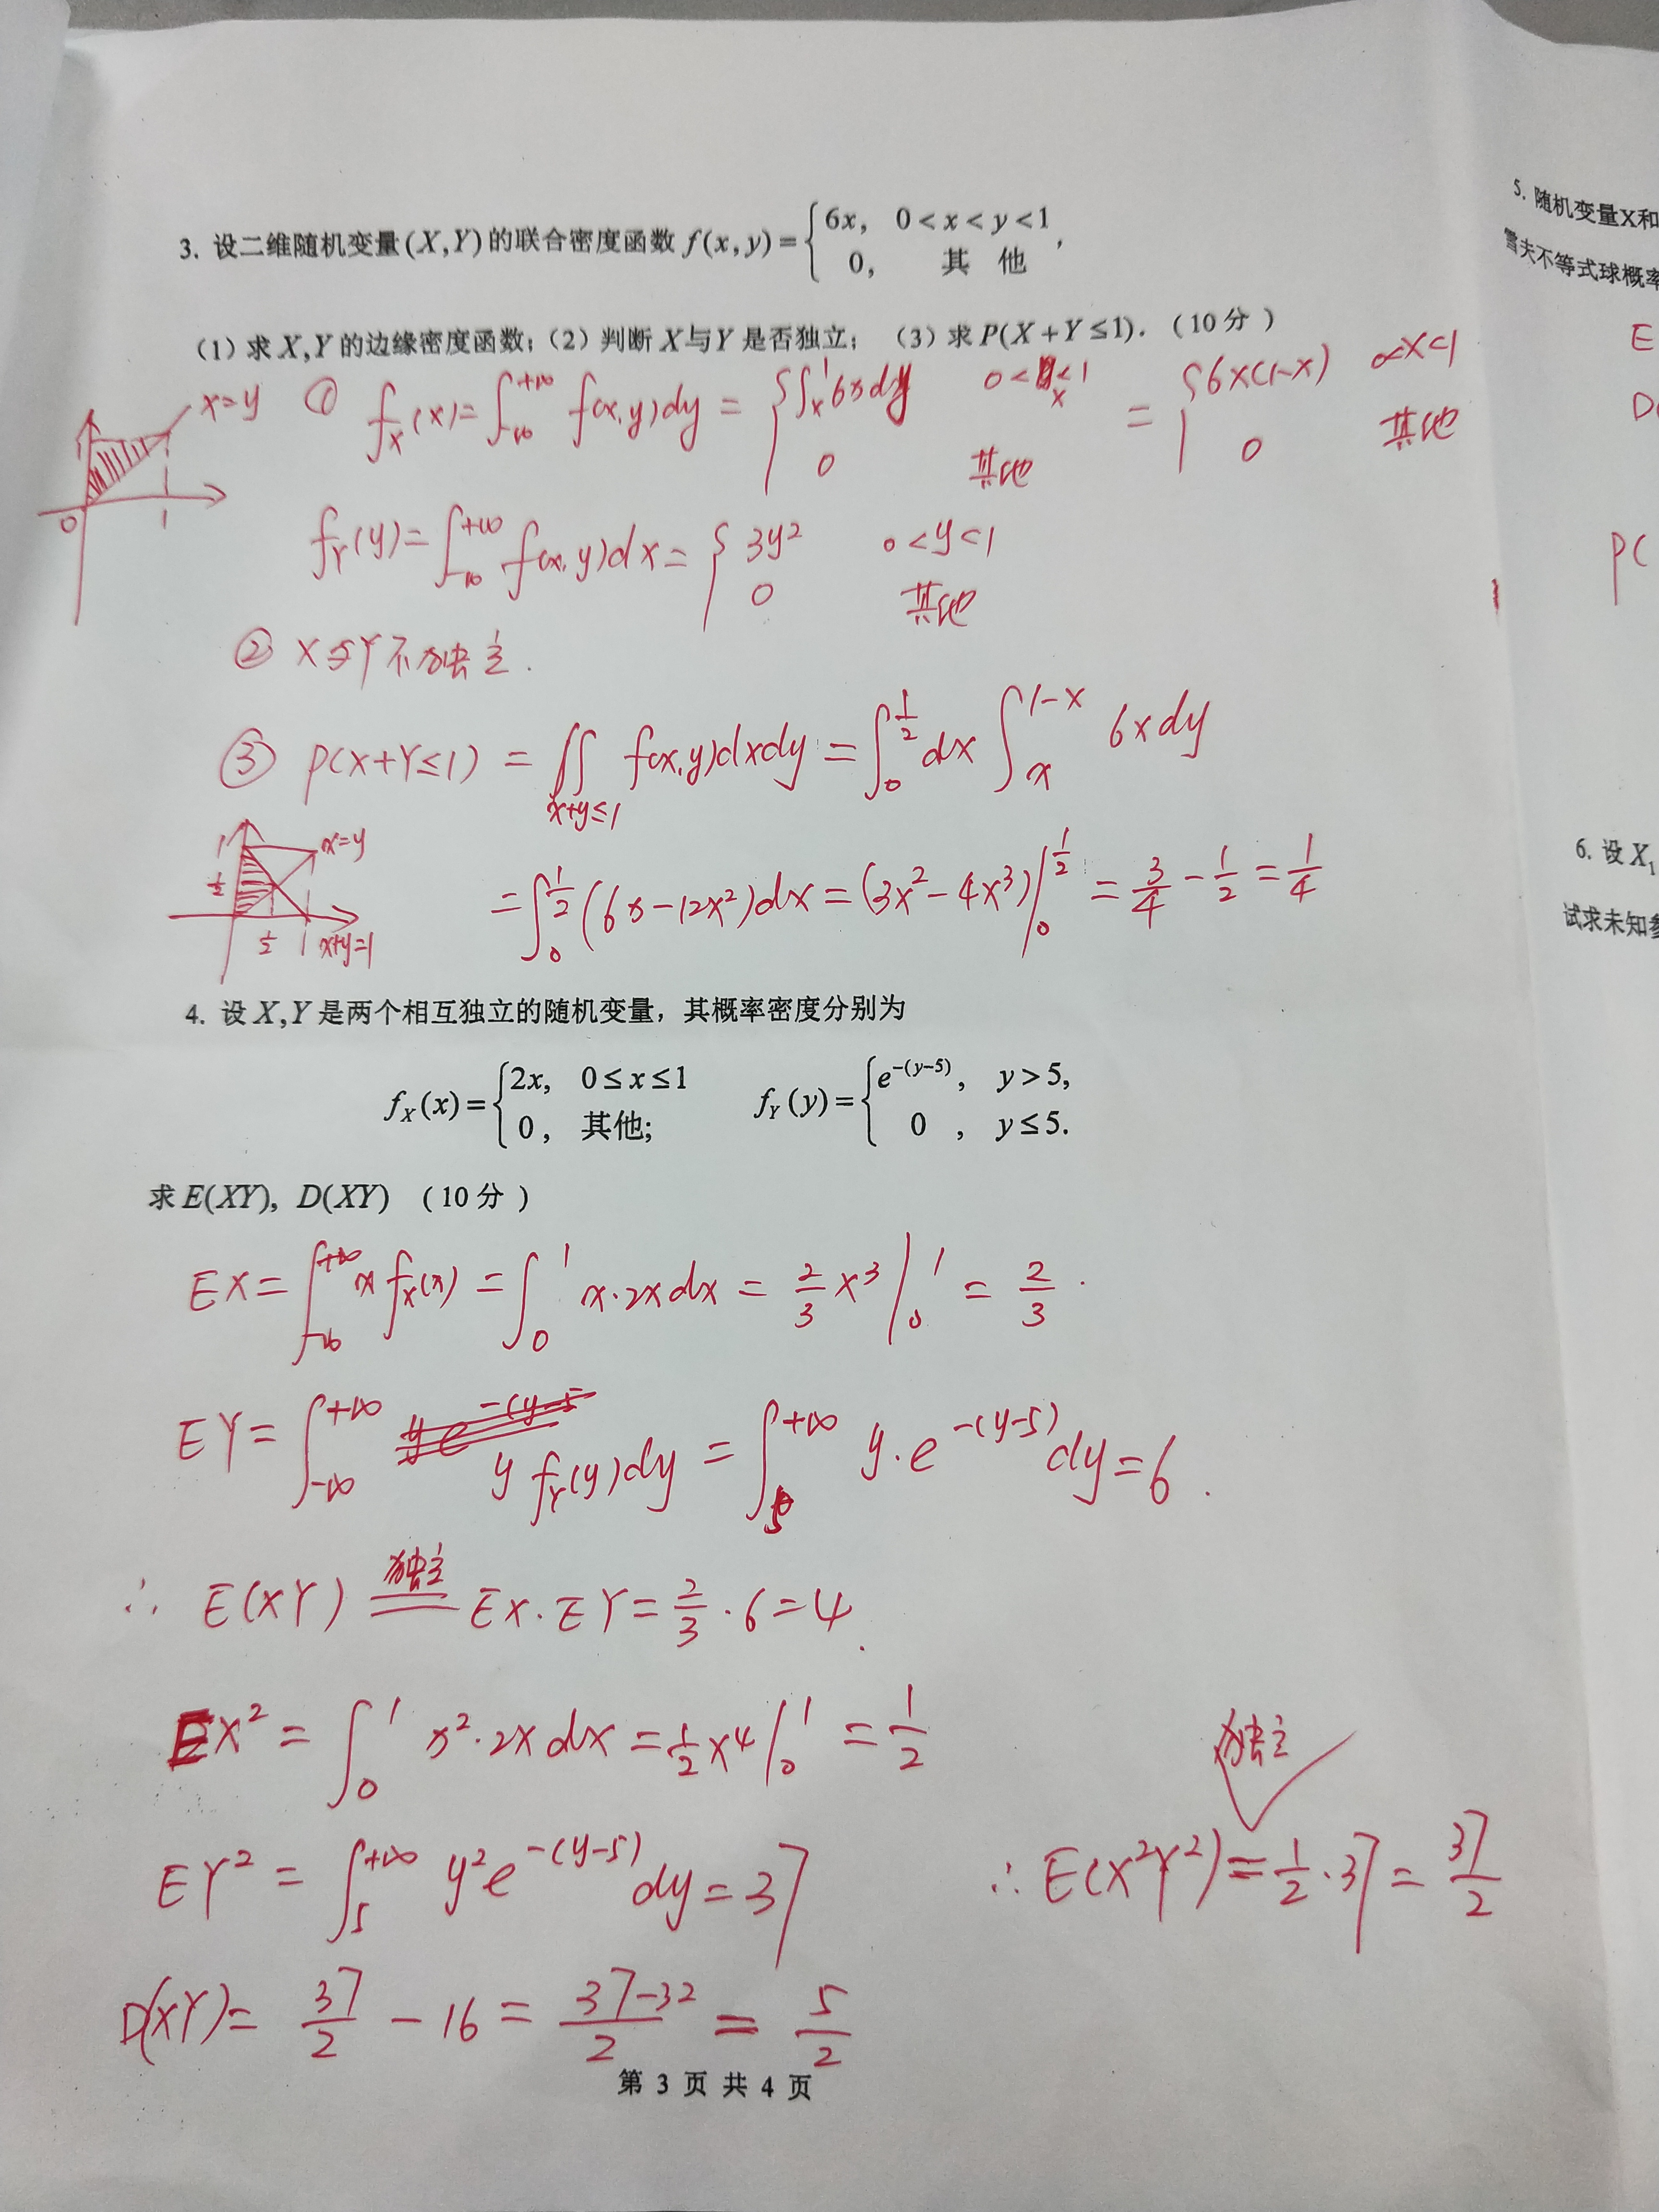 3. 设二维随机变量(X,Y)的联合密度函数 f(x,y)={6x, 0<x<y<1
0, 其 他 ,
(1) 求X,Y的边缘密度函数; (2) 判断X与Y是否独立; (3) 求P(X+Y≤1). (10分)
x=y
0 1
① f_X(x)=∫_{-∞}^{+∞} f(x,y)dy={∫_x^1 6xdy 0<x<1
0 其他
={6x(1-x) 0<x<1
0 其他
f_Y(y)=∫_{-∞}^{+∞} f(x,y)dx={3y² 0<y<1
0 其他
② X与Y不独立.
③ P(X+Y≤1) = ∬_{x+y≤1} f(x,y)dxdy = ∫_0^{1/2} dx ∫_x^{1-x} 6xdy
1 x=y
1/2
1/2 1 x+y=1
=∫_0^{1/2} (6x-12x²)dx=(3x²-4x³)|_0^{1/2} = 3/4 - 1/2 = 1/4
4. 设X,Y是两个相互独立的随机变量，其概率密度分别为
f_X(x)={2x, 0≤x≤1
0, 其他;
f_Y(y)={e^{-(y-5)}, y>5,
0 , y≤5.
求E(XY), D(XY) (10分)
EX=∫_{-∞}^{+∞} x f_X(x) = ∫_0^1 x·2xdx = 2/3 x³|_0^1 = 2/3.
EY=∫_{-∞}^{+∞} y f_Y(y)dy = ∫_5^{+∞} y·e^{-(y-5)}dy=6.
∴ E(XY) 独立 = EX·EY=2/3·6=4.
EX² = ∫_0^1 x²·2xdx = 1/2 x⁴|_0^1 = 1/2
EY² = ∫_5^{+∞} y²e^{-(y-5)}dy=37
独立
∴ E(X²Y²)=1/2·37=37/2
D(XY)= 37/2 - 16 = (37-32)/2 = 5/2
第 3 页 共 4 页
5. 随机变量X和
雪夫不等式球概率
E
D(
P(
6. 设X₁
试求未知参